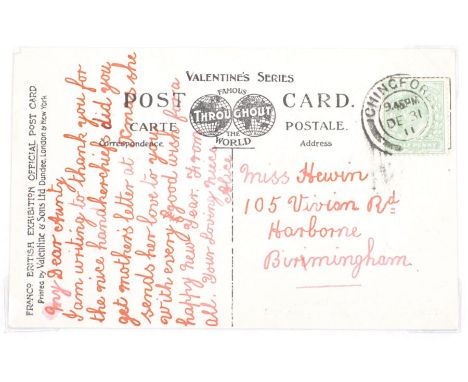 FRANCO BRITISH EXHIBITION OFFICIAL POST CARD
Printed by Valentine & Sons Ltd Dundee, London & New York
VALENTINE'S SERIES
FAMOUS
POST CARD.
THROUGHOUT
CARTE POSTALE.
THE
WORLD
Correspondence. Address
My Dear Aunty
I am writing to thank you for
the nice handkerchiefs did you
get mother's letter at Xmas she
sends her love to you
with every good wish for a
happy new year. From
all. Your loving niece
CHINGFORD
9.45PM
DE 31
11
Miss Hewin
105 Vivian Rd
Harborne
Birmingham